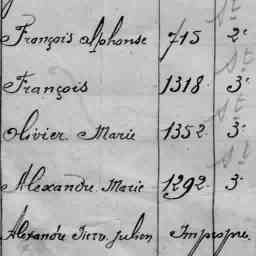 François alphonse 715 2e
François 1318 3e
Olivier Marie 1352 3e
Alexandre Marie 1292 3e
Alexandre Julien Impropre.